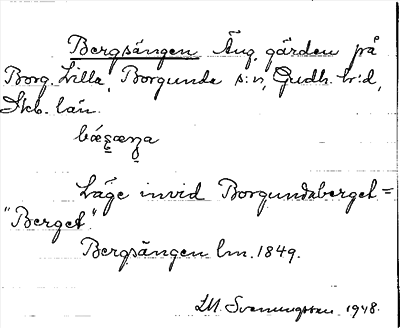 Bergsängen Äng, gärden på
Borg. Lilla, Borgunda s:n, Gudh. hr:d,
Skb. län.
Läge invid Borgundaberget =
"Berget".
Bergsängen lm. 1849.
Svenningsson 1948.